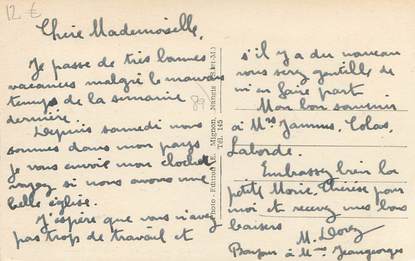 12 €
Chère Mademoiselle,
Je passe de très bonnes
vacances malgré le mauvais
temps de la semaine
dernière.
Depuis samedi nous
sommes dans mon pays
je vous envoi mon clocher
voyez si nous avons une
belle église.
J'espère que vous n'avez
pas trop de travail et
Photo - Edition E. Mignon, Nangis (S.-et-M.)
Tél. 145
s'il y a du nouveau
vous serez gentille de
m'en faire part
Mon bon souvenir
à Mrs Jammes, Colas,
Laborde.
Embrassez bien la
petite Marie Thérèse pour
moi et recevez mes bons
baisers
M. Dorez
Bonjour à Mme Jeangeorges